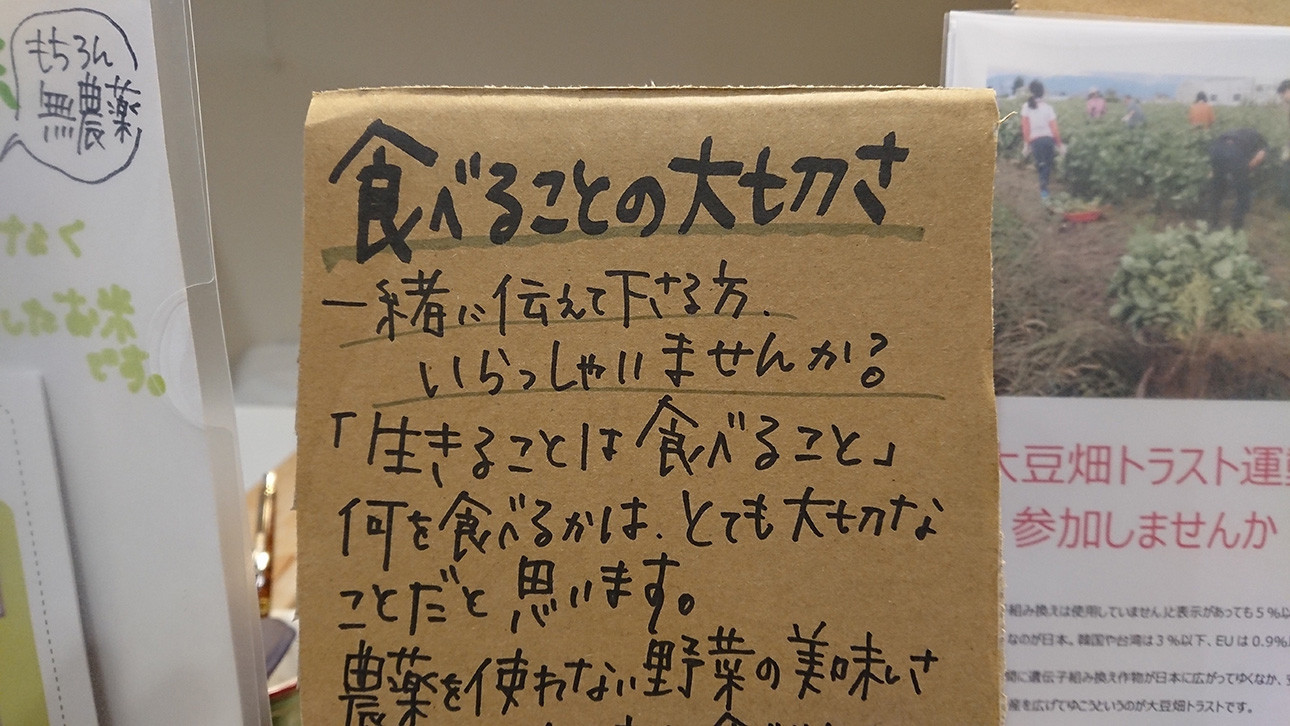 もちろん
無農薬
食べることの大切さ
一緒に伝えて下さる方、
いらっしゃいませんか?
「生きることは食べること」
何を食べるかは、とても大切な
ことだと思います。
農薬を使わない野菜の美味しさ
大豆畑トラスト運動
参加しませんか
組み換えは使用していません」と表示があっても5%以
なのが日本。韓国や台湾は3%以下、EUは0.9%
間に遺伝子組み換え作物が日本に広がってゆくなか、
産を広げてゆこうというのが大豆畑トラストです。